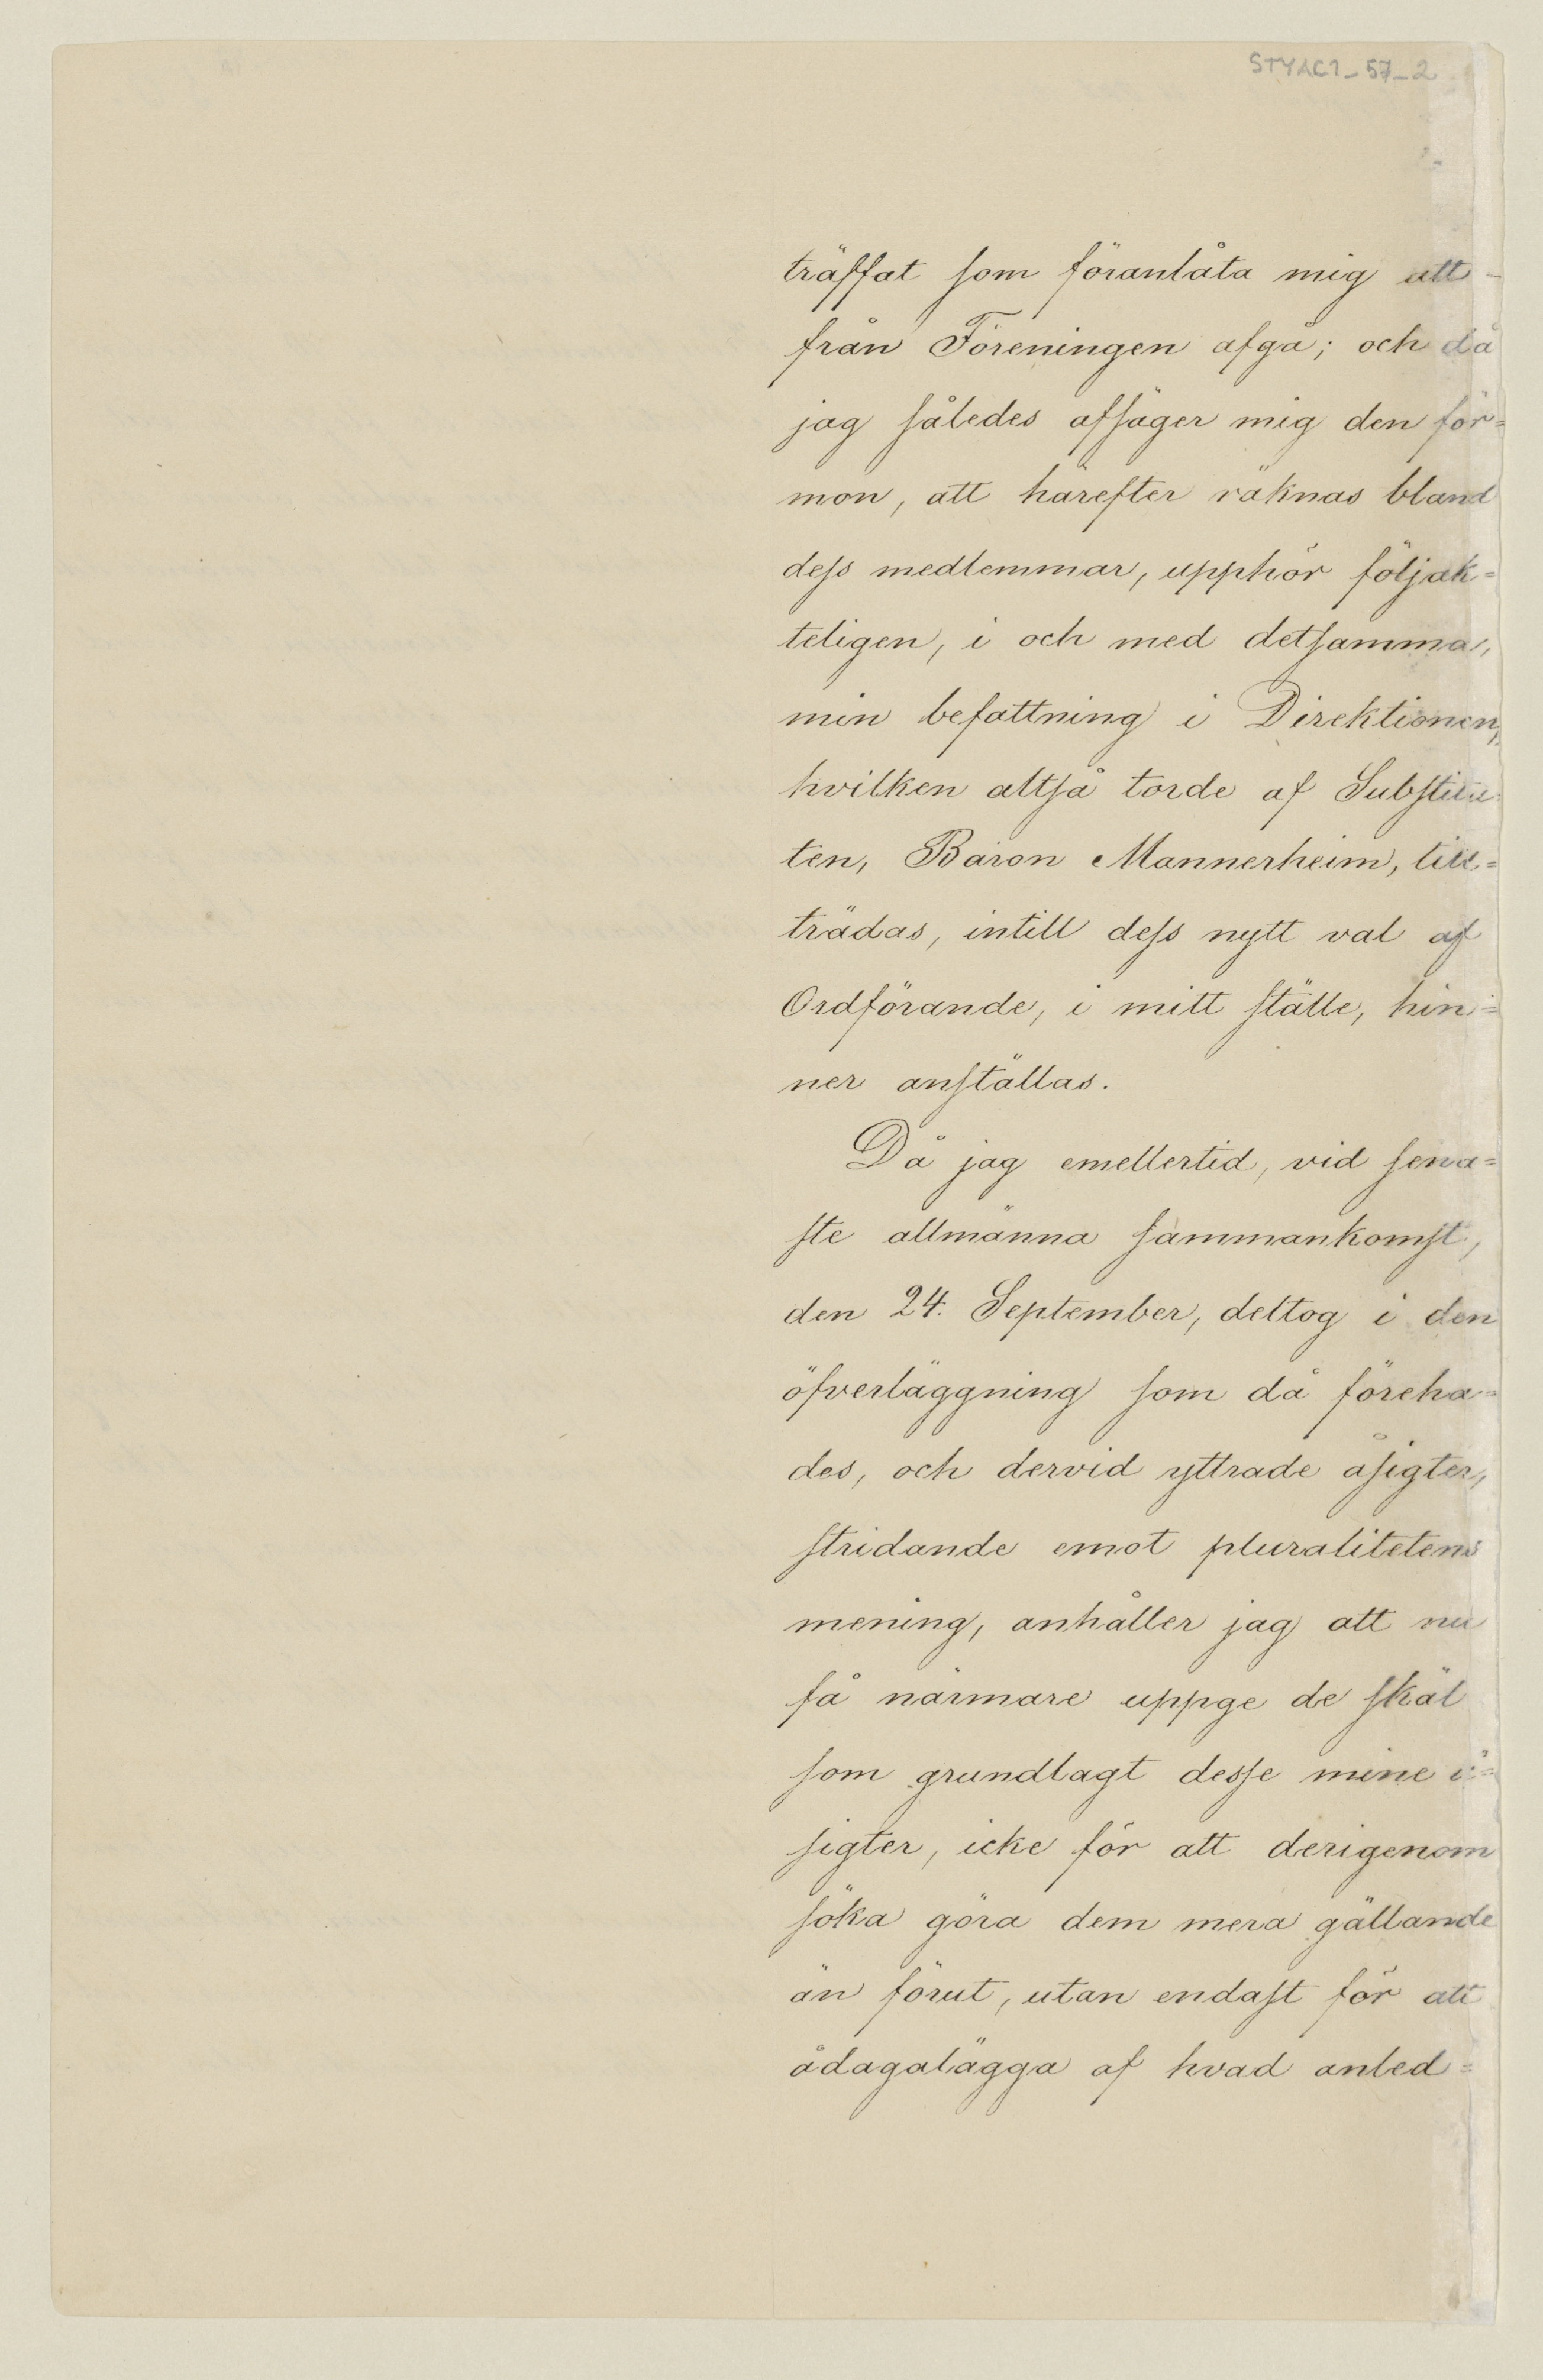 STYAC1_57_2
träffat som föranlåta mig att
från Föreningen afgå; och då
jag således afsäger mig den för=
mon, att härefter räknas bland
dess medlemmar, upphör följak=
teligen, i och med detsamma,
min befattning i Direktionen,
hvilken altså torde af Substitu
ten, Baron Mannerheim, till=
trädas, intill dess nytt val af
Ordförande, i mitt ställe, hin=
ner anställas.
Då jag emellertid, vid sena=
ste allmänna sammankomst,
den 24. September, deltog i den
öfverläggning som då föreha=
des, och dervid yttrade åsigter,
stridande emot pluralitetens
mening, anhåller jag att nu
få närmare uppge de skäl
som grundlagt desse mine å=
sigter, icke för att derigenom
söka göra dem mera gällande
än förut, utan endast för att
ådagalägga af hvad anled=